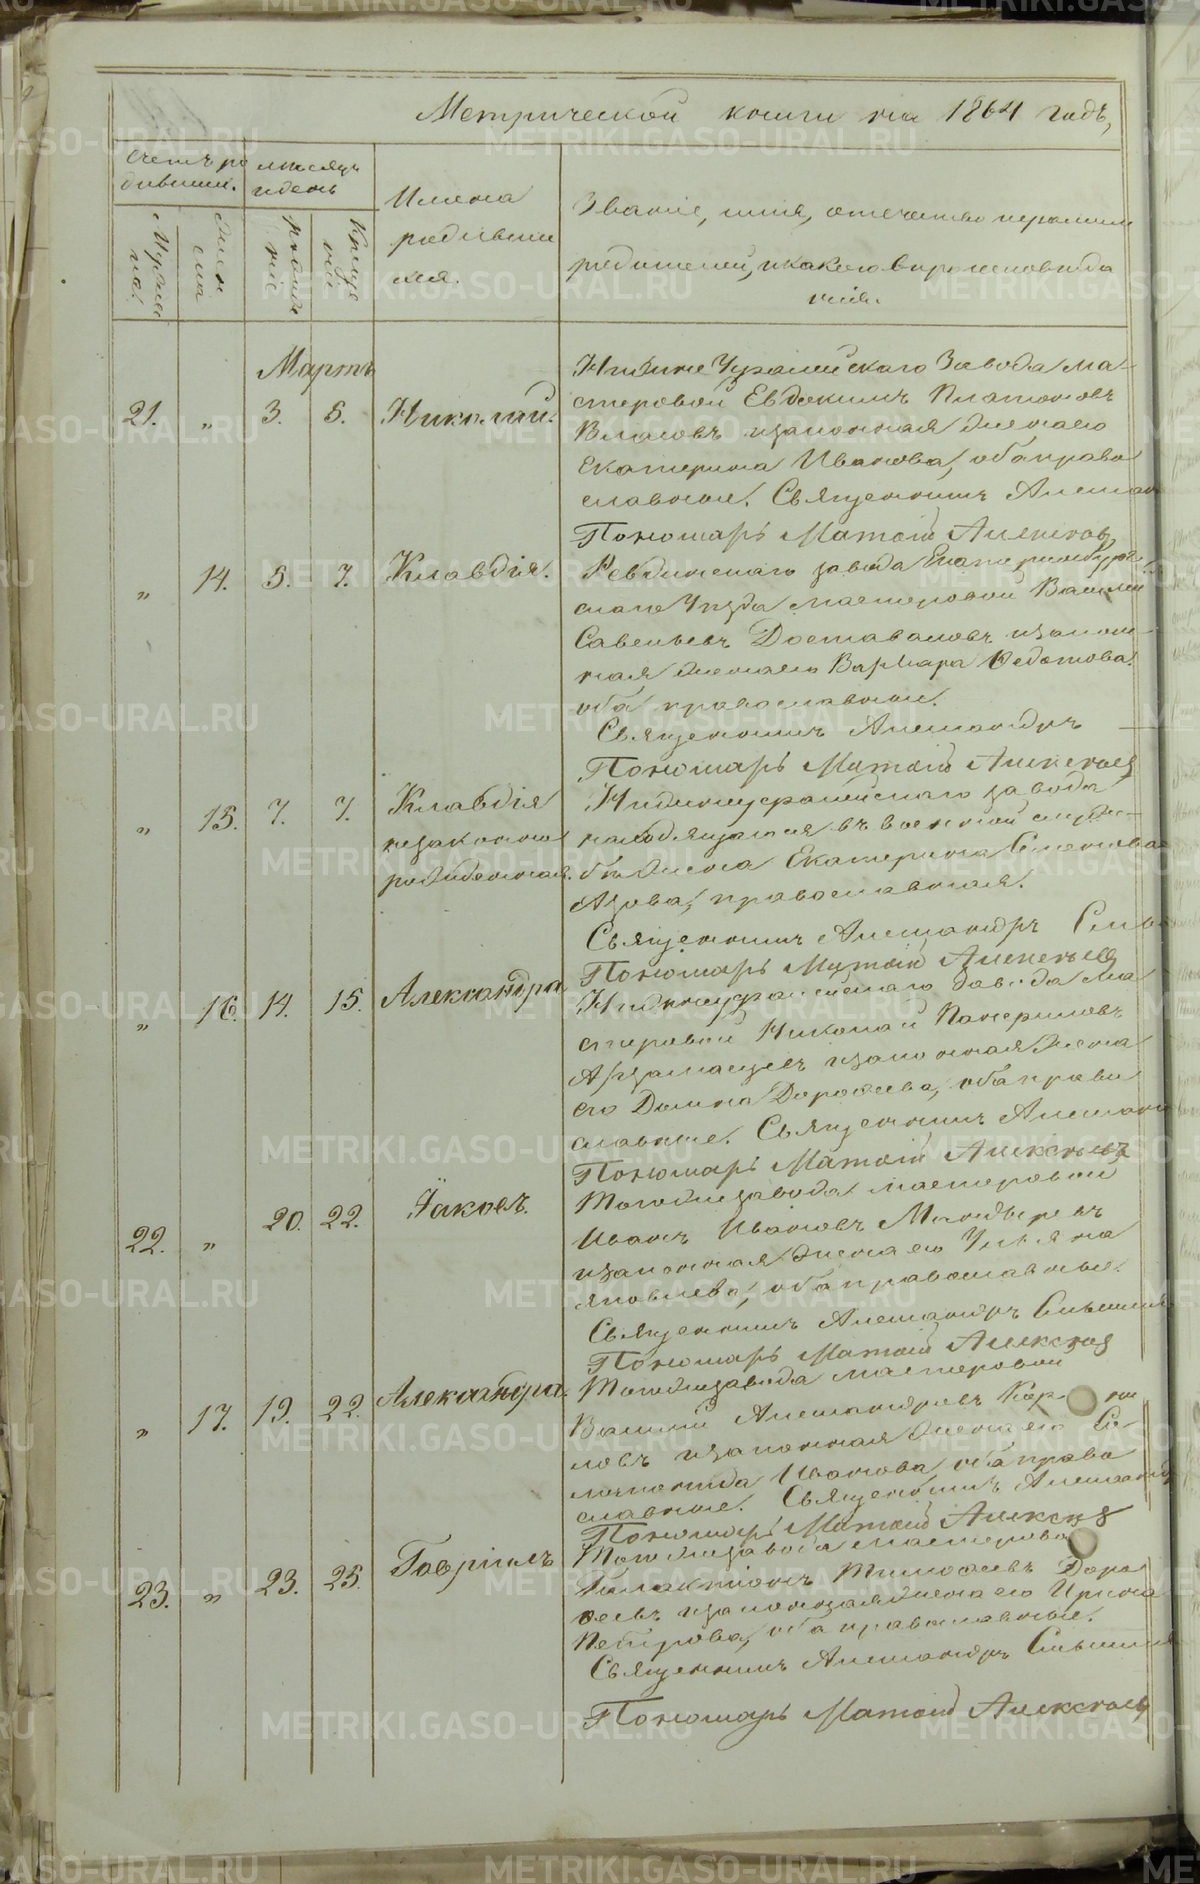 Метрической книги на 1864 годъ,
Счетъ ро
дившихся.
мѣсяцъ
и день
Имена
родивших
ся.
Званіе, имя, отечество и фамилія
родителей, и какого вѣроисповѣда
нія.
Мужска
пола.
рожде
нія
Креще
нія
Мартъ
21. " 3. 5. Николай.
Нижне Уфалейскаго Завода ма-
стеровой Евдокимъ Платоновъ
Власовъ и законная жена его
Екатерина Иванова, оба право
славные. Священникъ Александръ
Пономарь Матѳій Алексѣевъ
" 14. 5. 7. Клавдія.
Ревдинскаго завода Екатеринбург
скаго Уѣзда мастеровой Василий
Савельевъ Доставаловъ и закон-
ная жена его Варвара Федотова
оба православные.
Священникъ Александръ
Пономарь Матѳій Алексѣевъ
" 15. 7. 7. Клавдія
незаконно
рожденная.
Нижнеуфалейскаго завода
находящагося въ военной служ-
бѣ жена Екатерина Семенова
Азова, православная.
Священникъ Александръ
Пономарь Матѳій Алексѣевъ
" 16. 14. 15. Александра
Нижнеуфалейскаго завода ма
стеровой Николай
и законная жена
его Домна Дорофеева, оба право
славные. Священникъ Александръ
Пономарь Матѳій Алексѣевъ
22. " 20. 22. Іаковъ.
Тогоже завода мастеровой
Иванъ Ивановъ
и законная жена его Ульяна
Яковлева, оба православные.
Священникъ Александръ
Пономарь Матѳій Алексѣевъ
" 17. 19. 22. Александра.
Тогоже завода мастеровой
Василий Александровъ
ловъ и законная жена его
Иванова, оба право
славные. Священникъ Александръ
Пономарь Матѳій Алексѣевъ
23. " 23. 25. Гавріилъ
Тогоже завода мастеровой
Галактіонъ Тимофеевъ Доро
феевъ и законная жена его Ирина
Петрова, оба православные.
Священникъ Александръ
Пономарь Матѳій Алексѣевъ
METRIKI.GASO-URAL.RU